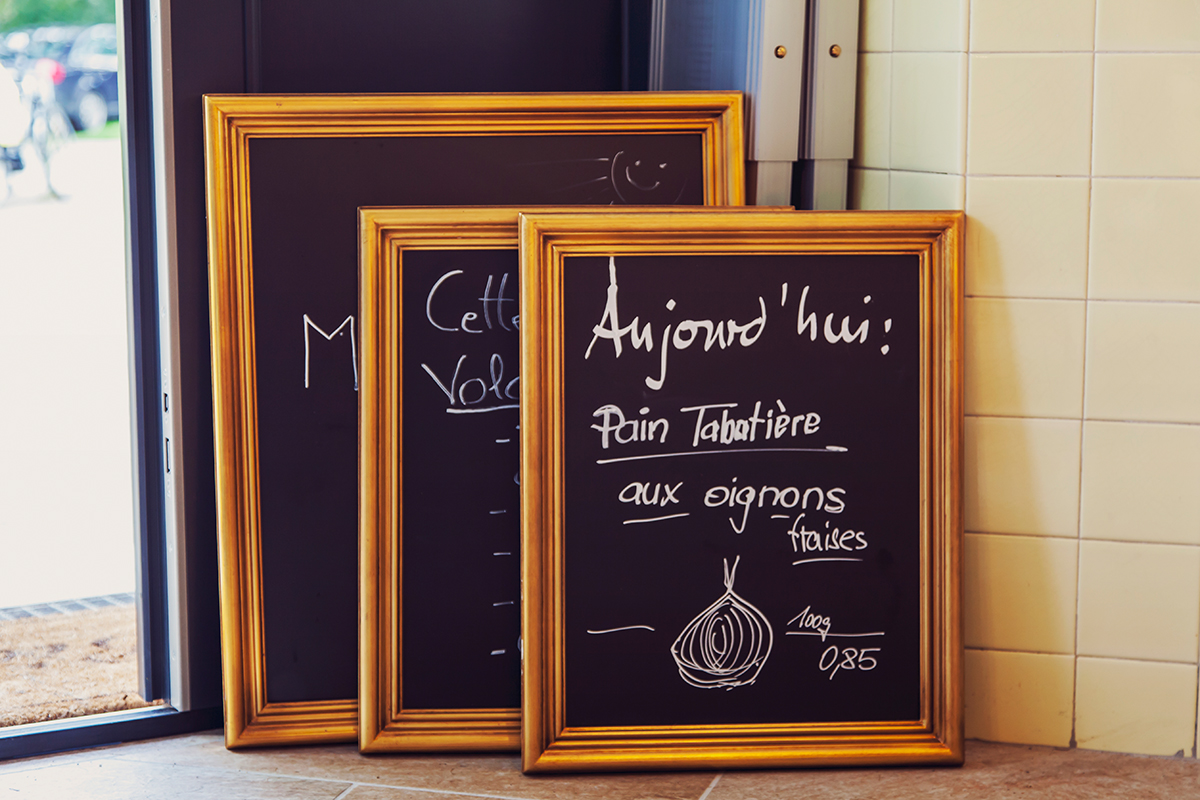 M
Cette
Aujourd'hui:
Pain Tabatière
aux oignons
fraises
100g
0,85